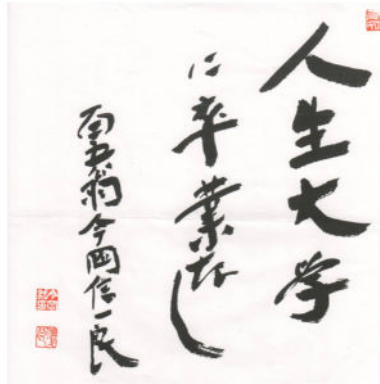 人生大学
に卒業なし
百五翁 今岡信一良